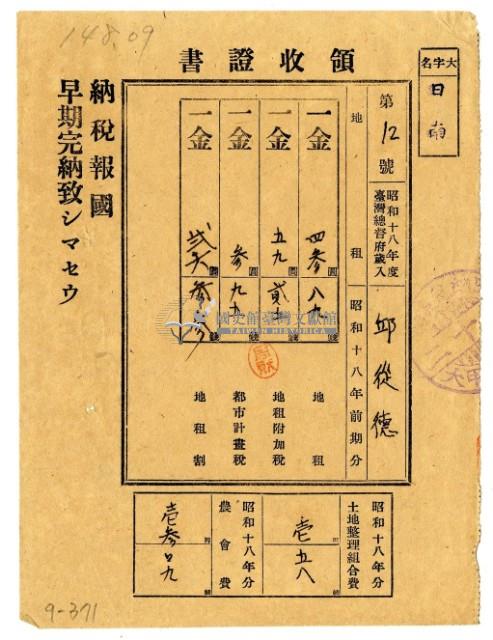 148.09
領收證書
大字名
日南
第12號
昭和十八年度
臺灣總督府歲入
邱從德
地租
昭和十八年前期分
一金
四參圓八九錢
地租
一金
五九圓貳七錢
地租附加稅
一金
參圓九五錢
都市計畫稅
一金
圓參錢
地租割
納稅報國
早期完納致シマセウ
國史館臺灣文獻館
TAIWAN HISTORICA
昭和十八年分
土地整理組合費
壹圓五八錢
昭和十八年分
農會費
壹參圓口九錢
9-371